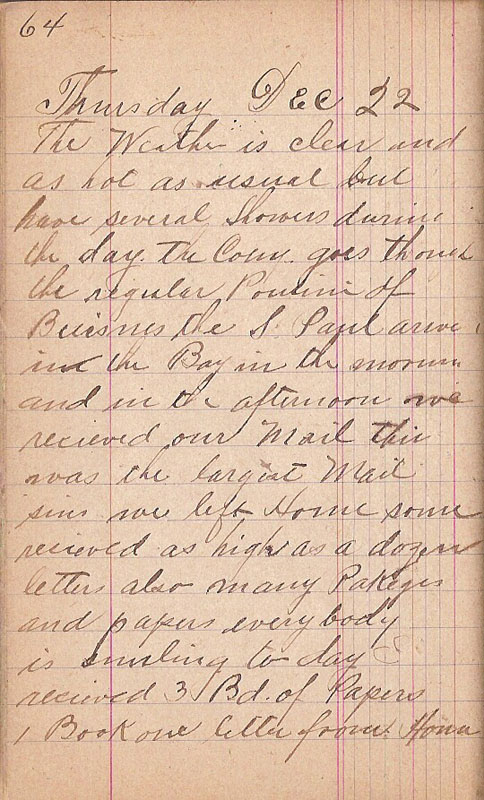 64
Thursday Dec 22
The Weather is clear and
as hot as usual but
have several Showers during
the day. the Comy. goes though
the regular Poutini of
Buisnes the S. Paul arive
in the Bay in the morning
and in the afternoon we
recieved our Mail this
was the largest Mail
sins we left Home some
recieved as high as a dozen
letters also many Pakeges
and papers everybody
is smiling to day
recieved 3 Bd. of Papers
1 Book one letter from Home